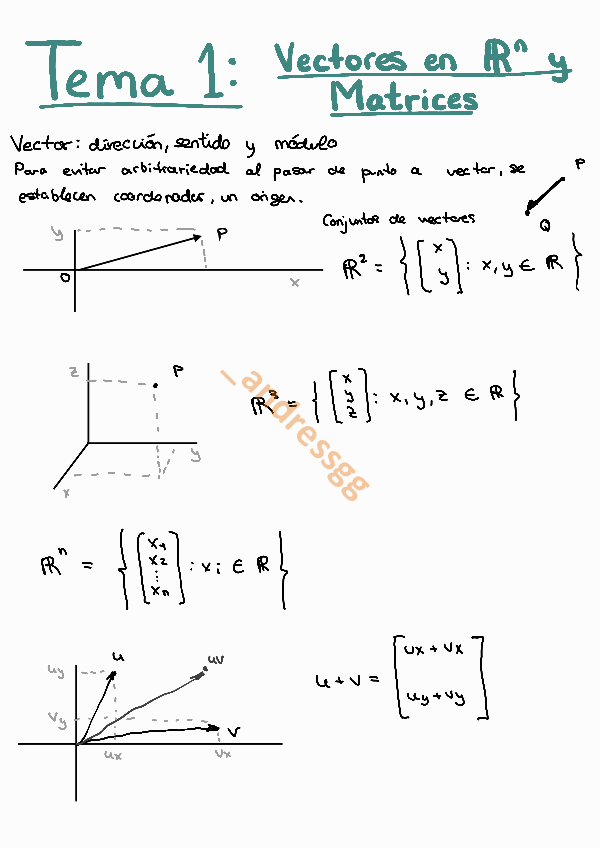 Tema 1: Vectores en ℝⁿ y
Matrices
Vector: dirección, sentido y módulo
Para evitar arbitrariedad al pasar de punto a vector, se
establecen coordenadas, un origen.
P
Q
Conjuntos de vectores
y
P
O
x
ℝ² = { [ x y ] : x, y ∈ ℝ }
z
P
y
x
ℝ³ = { [ x y z ] : x, y, z ∈ ℝ }
_andressgg
ℝⁿ = { [ x1 x2 ⋮ xn ] : xi ∈ ℝ }
uy
u
uv
vy
v
ux
vx
u + v = [ ux + vx
uy + vy ]